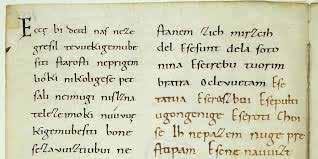 Eccę bi detd naſ neze
greſil tevuekigemube
ſiti ſtaroſti neprigem
lióki nikoligeſe pet
ſali neimugi niſlzna
teleſeimoki nuúvue
kigemubeſiti bone
ſezavuiztiubui ne
ſtanem zich mirzcih
del Eſeſunt dela ſoto
nina Eſetrebu tuorim
bratra Oclevuetam Eſe
tatua Eſeraſboi Eſepulti
ugongenige Eſeroti Choi
ſe Ih nepaſem nuge pre
ſtupam Eſe nenauuiſt